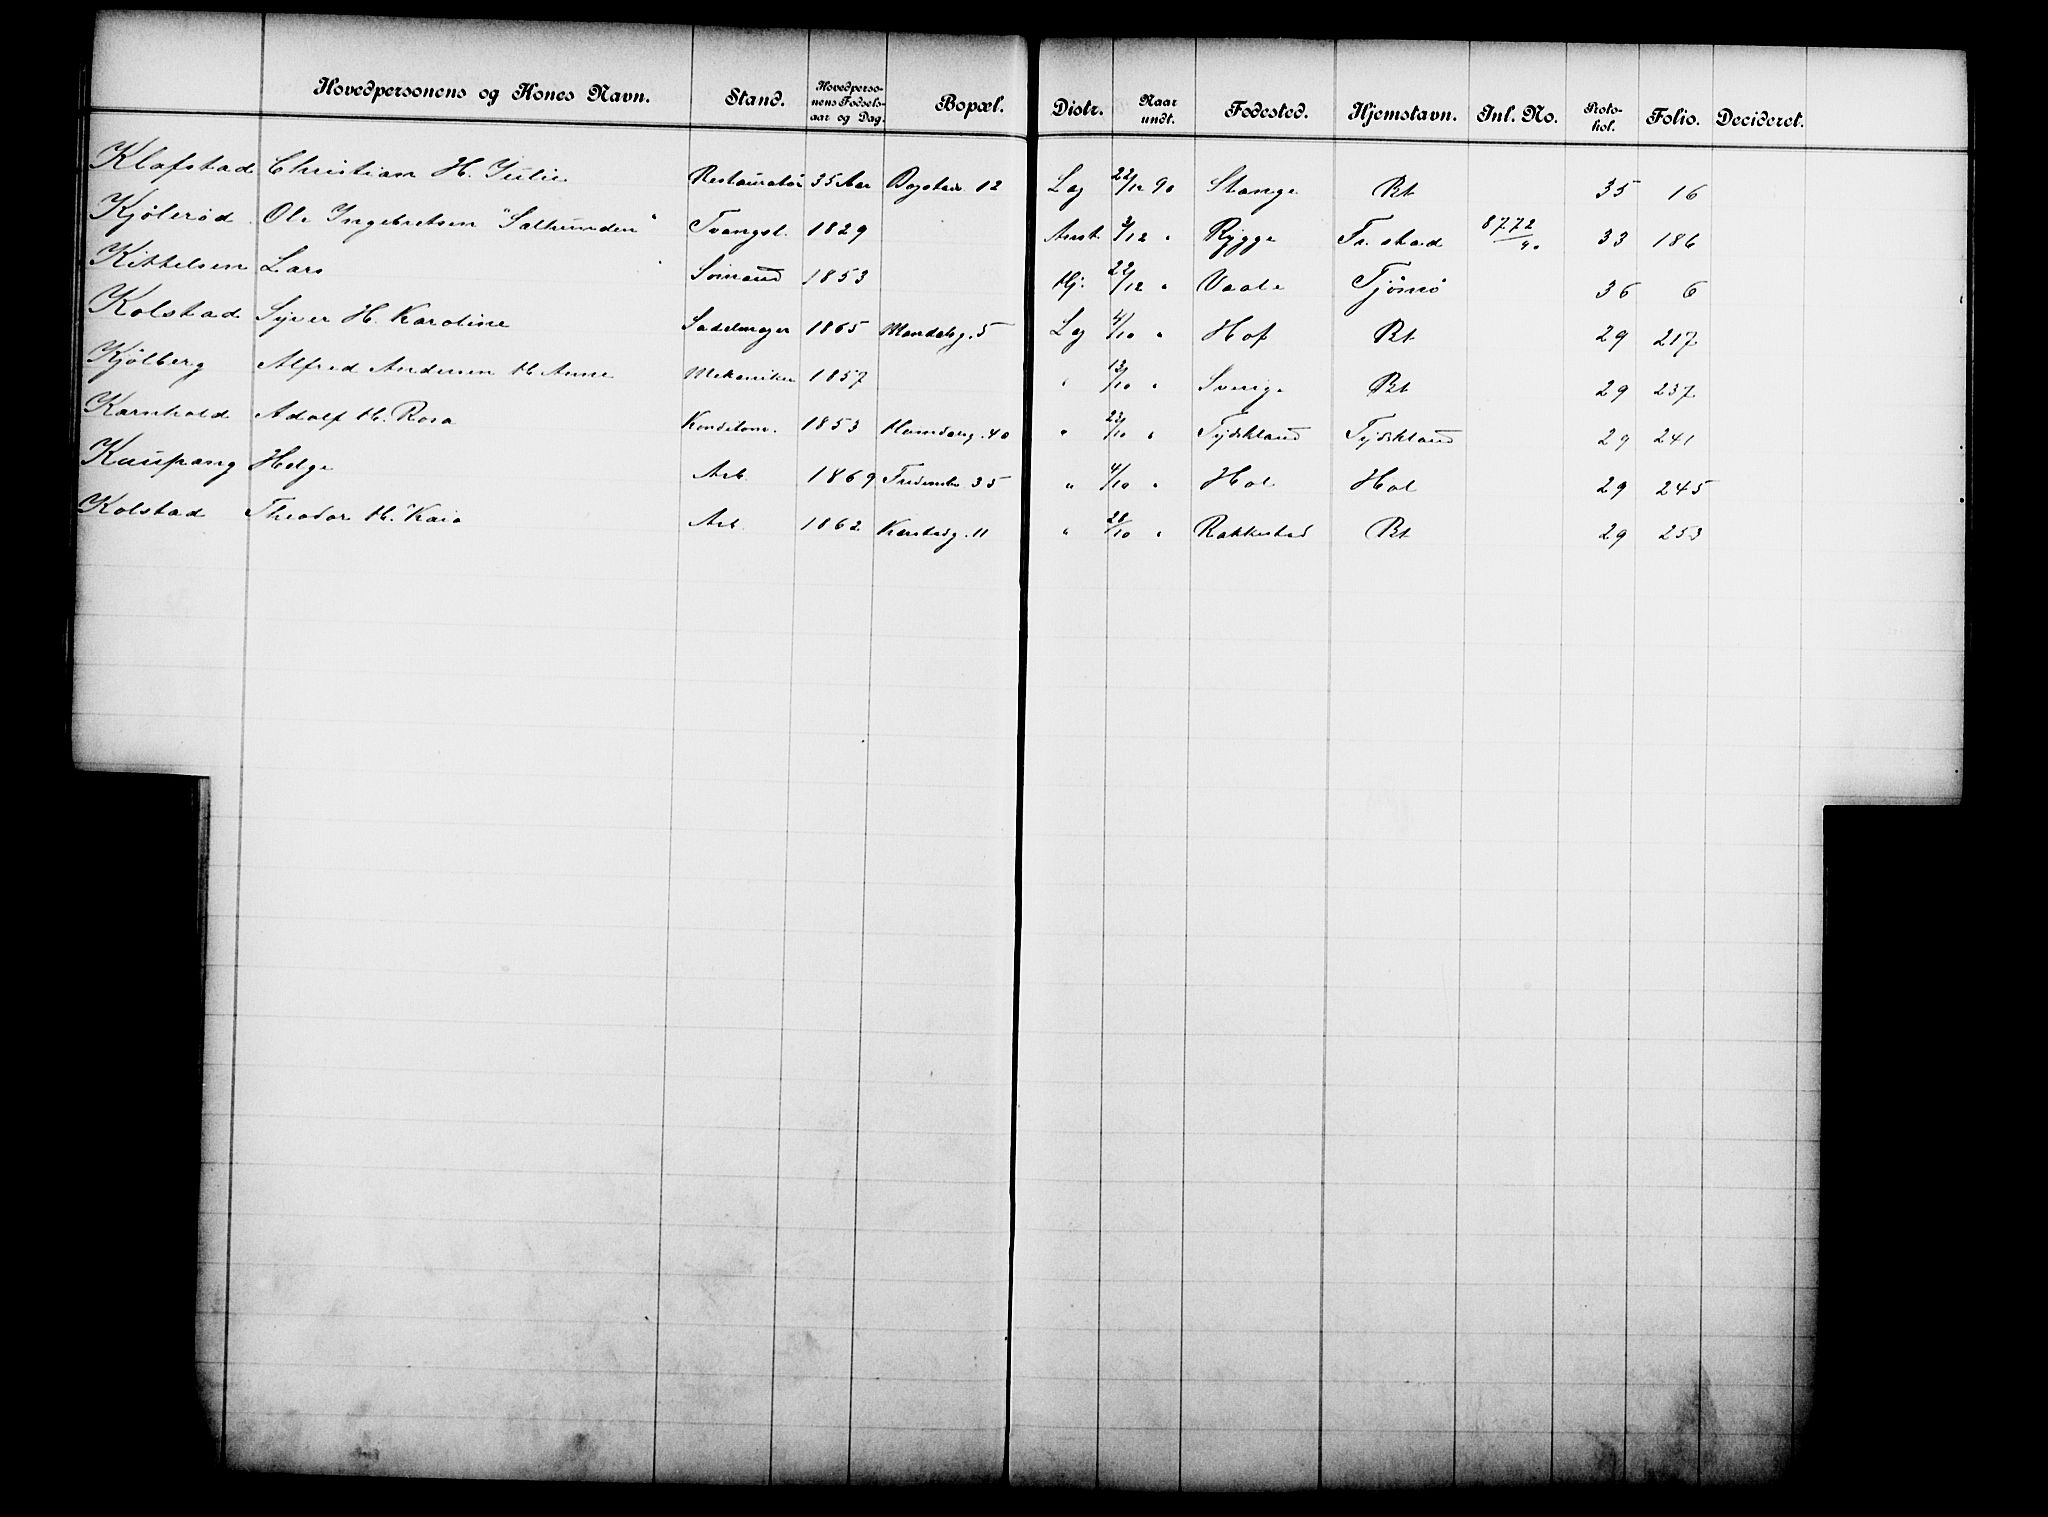 Hovedpersonens og Kones Navn. Stand. Hovedperso-nens Fødsels-aar og Dag. Bopæl. Distr. Naar undt. Fødested. Hjemstavn. Jnl. No. Proto-kol. Folio. Decideret.
Klafstad Christian H. Julie Restauratør 35 Aar Bogstadv. 12 Lag 22/12 90 Stange Rt 35 16
Kjølerød Ole Ingebretsen "Salhunden" Tvangsl. 1829 3/12 " Rygge Fr. stad 8772/90 33 186
Kittelsen Lars Sømand 1853 Hj. 22/12 " Vaale Tjømø 36 6
Kolstad Syver H. Karoline Sadelmager 1865 Mandalsg. 5 Lag 4/10 " Hof Rt 29 217
Kjølberg Alfred Andersen H. Anne Mekaniker 1857 " 13/10 " Sverige Rt 29 237
Karnhold Adolf H. Rosa 1853 40 " 23/10 " Tydskland Tydskland 29 241
Kaupang Helge Arb. 1869 35 " 4/10 " Hol Hol 29 245
Kolstad Theodor H. Kaia Arb. 1862 11 " 28/10 " Rakkestad Rt 29 253